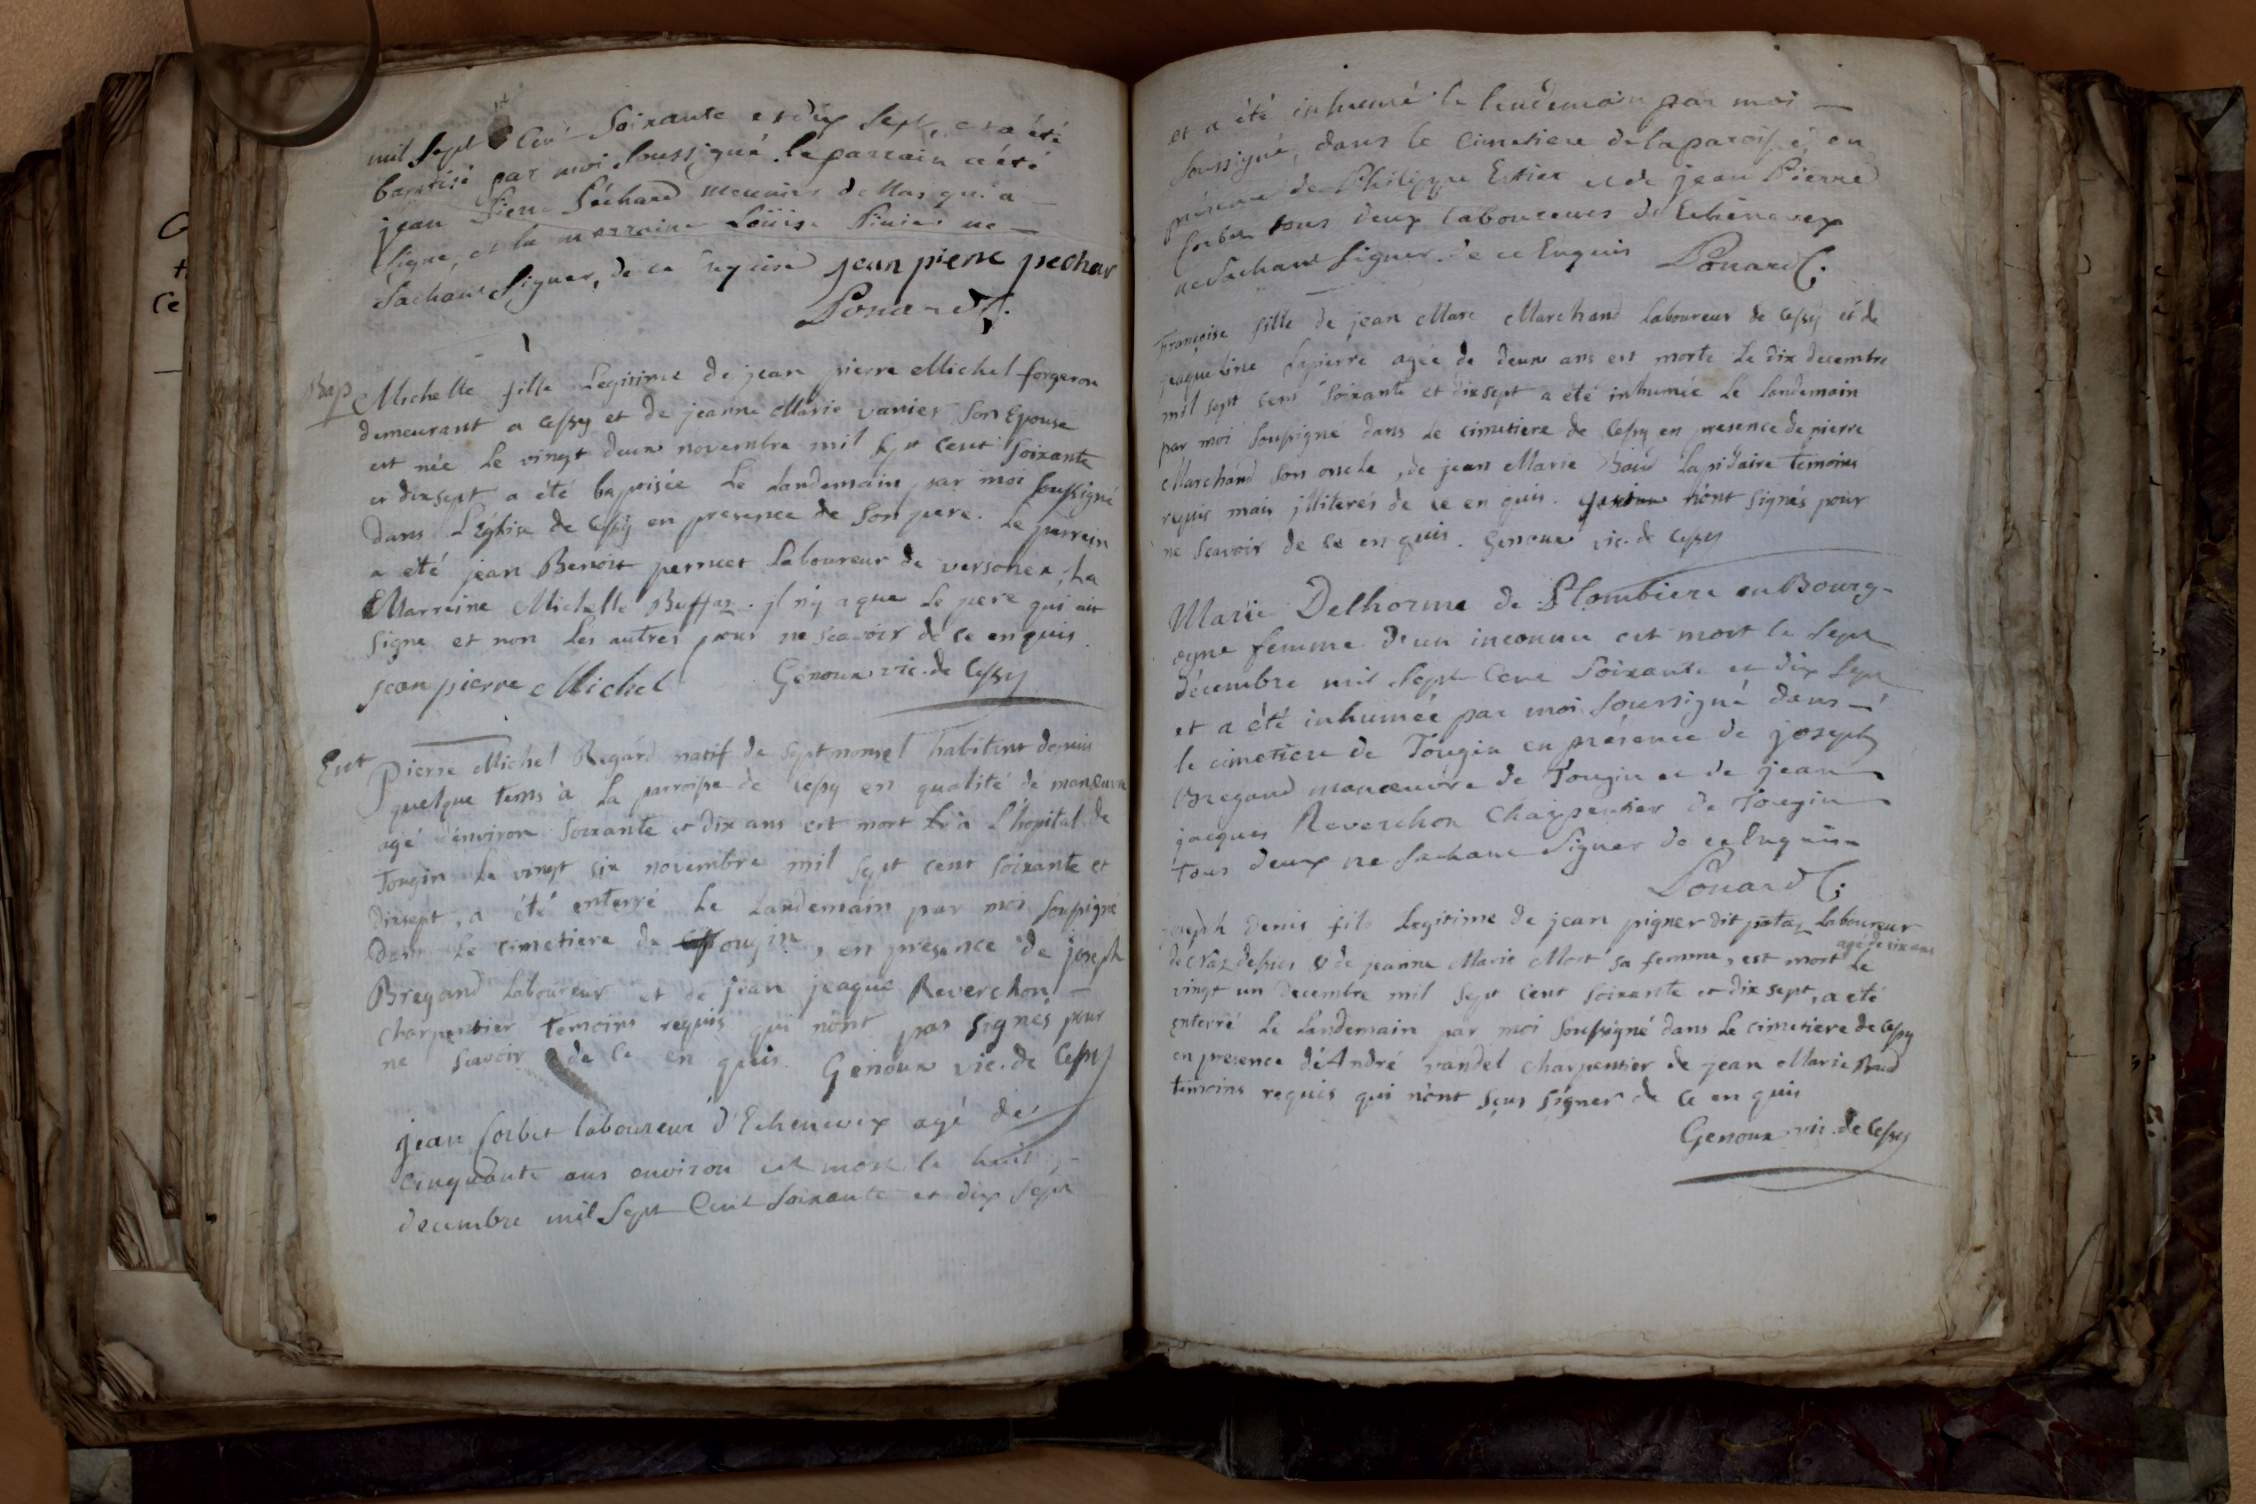 mil sept Cent Soixante et dix Sept, et a été
baptisé par moi Soussigné. le parrain a été
jean Pierre Péchard de Mas qui a
Signé, et la marraine Loüise ne
Sachant Signer, de ce requise jean pierre pechar
Ponard C.
Bap Michelle fille Legitime de jean pierre Michel forgeron
demeurant a Cessy et de jeanne Marie vanier son Epouse
est née le vingt deux novembre mil sept cent soixante
et dixsept a été baptisée Le Landemain par moi soussigné
dans L'église de Cessy en presence de son pere. Le parrein
a été jean Benoit perruet Laboureur de versonex, La
Marraine Michelle Buffaz. il n'y a que le pere qui ait
signe et non les autres pour ne scavoir de ce enquis.
jean pierre Michel Genoux vic. de Cessy
Ent Pierre Michel Regard natif de septmonsel habitant depuis
quelque tems à La parroisse de Cessy en qualité de manœuvre
agé d'environ soixante et dix ans est mort à L'hopital de
Tougin Le vingt six novembre mil sept cent soixante et
dixsept, a été enterré Le Landemain par moi soussigné
Dans Le cimetiere de Tougin, en presence de joseph
Bregand Laboureur et de jean jeaque Reverchon
charpentier temoins requis qui n'ont pas signés pour
ne scavoir de ce en quis. Genoux vic. de Cessy
jean forbet laboureur d'Echenevex agé de
Cinquante ans environ est mort le huit
decembre mil Sept Cent soixante et dix sept
et a été inhumé le lendemain par moi
soussigné, dans le Cimetiere de la paroisse, en
présence de Philippe Estier et de jean Pierre
forbet tous deux laboureurs d'Echenevex
ne Sachant signer de ce Enquis Ponard C.
Françoise fille de jean Marc Marchand Laboureur de Cessy et de
jeaqueline Lapierre agée de deux ans est morte Le dix decembre
mil sept cent soixante et dixsept a été inhumée Le Landemain
par moi soussigné dans Le cimetiere de Cessy en presence de pierre
Marchand son oncle, de jean Marie Baud Lapidaire temoins
requis mais jlliterés de ce en quis. n'ont signés pour
ne scavoir de ce en quis. Genoux vic. de Cessy
Marie Delhorme de Plombiere en Bourg-
ogne femme d'un inconnu est mort le sept
décembre mil Sept Cent Soixante et dix Sept
et a été inhumée par moi soussigné dans
le cimetiere de Tougin en présence de joseph
Bregand manœuvre de Tougin et de jean
jacques Reverchon Charpentier de Tougin
tous deux ne Sachant Signer de ce Enquis
Ponard C.
joseph Denis fils Legitime de jean pigner dit Laboureur
de de jeanne Marie Mort sa femme, est mort agé de six ans Le
vingt un decembre mil sept cent soixante et dix sept, a été
enterré Le Landemain par moi soussigné dans Le cimetiere de Cessy
en presence d'André vandel charpentier de jean Marie Baud
temoins requis qui n'ont sçus signer de ce en quis
Genoux vic. de Cessy